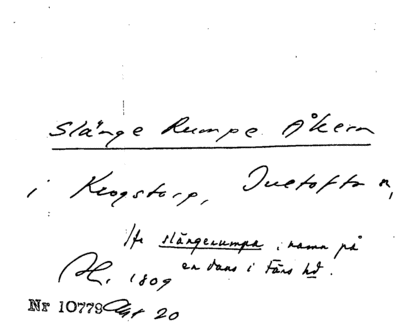 Slänge Rumpe Åkern
i Krogstorp, Tuetofta n,
Jfr slängerumpa, namn på
en dans i Färs hd.
1809
Nr 10779 Akt 20